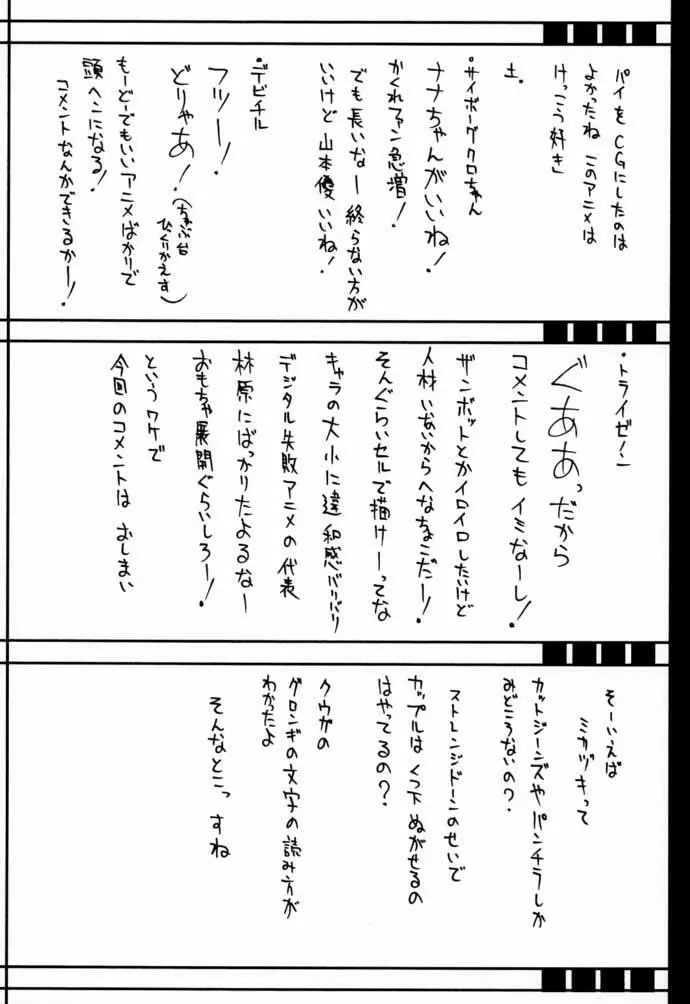 パイをCGにしたのは
よかったね このアニメは
けっこう好き」
土.
・サイボーグクロちゃん
ナナちゃんがいいね!
かくれファン急増!
でも長いなー 終らない方が
いいけど 山本優 いいね!
・デビチル
フツー!
どりゃあ!(ちゃぶ台
ひくりかえす)
もーどーでもいいアニメばかりで
頭ヘンになる!
コメントなんかできるかー!
・トライゼノン
ぐああっだから
コメントしてもイミなーし!
ザンボットとかイロイロしたいけど
人材いないからへなちょこだー!
そんぐらいセルで描けーってな
キャラの大小に違和感バリバリ
デジタル失敗アニメの代表
林原にばっかりたよるなー
おもちゃ展開ぐらいしろー!
というワケで
今回のコメントは おしまい
そーいえば
ミカヅキって
カットジーンズやパンチラしか
みどころないの?
ストレンジドーンのせいで
カップルは くつ下 ぬがせるの
はやってるの?
クウガの
グロンギの文字の読み方が
わかったよ
そんなとこっすね